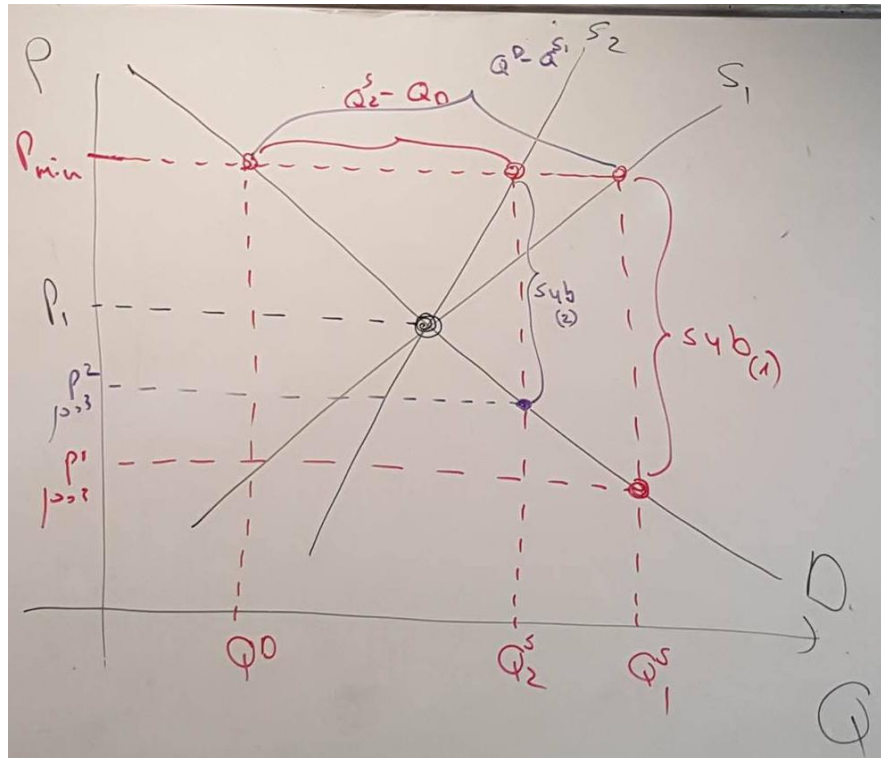 P
Q^D - Q^S1
S2
S1
Q^S_2 - QD
Pmin
P1
sub
(2)
sub(1)
P^2
P^1
D.
QD
Q^S_2
Q^S_1
Q